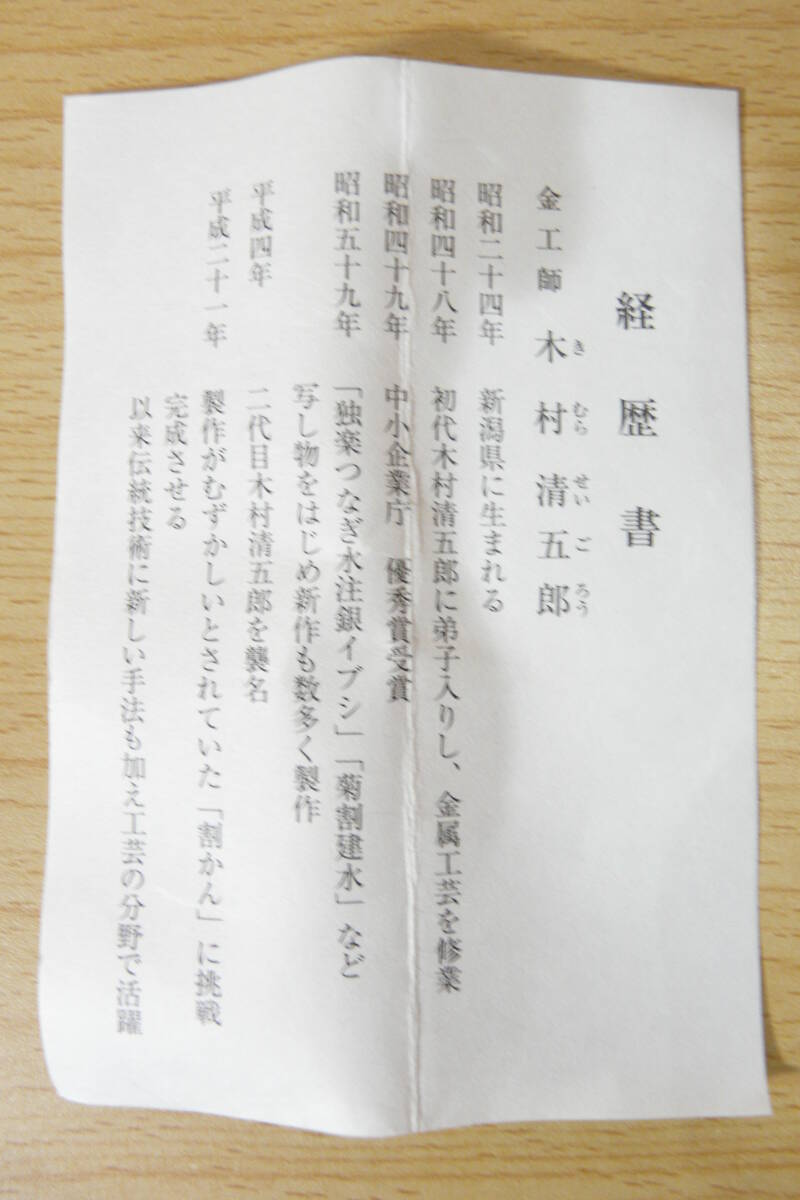 経歴書
金工師 木村清五郎
きむらせいごろう
昭和二十四年 新潟県に生まれる
昭和四十八年 初代木村清五郎に弟子入りし、金属工芸を修業
昭和四十九年 中小企業庁 優秀賞受賞
昭和五十九年 「独楽つなぎ水注銀イブシ」「菊割建水」など
写し物をはじめ新作も数多く製作
平成四年 二代目木村清五郎を襲名
平成二十一年 製作がむずかしいとされていた「割かん」に挑戦
完成させる
以来伝統技術に新しい手法も加え工芸の分野で活躍